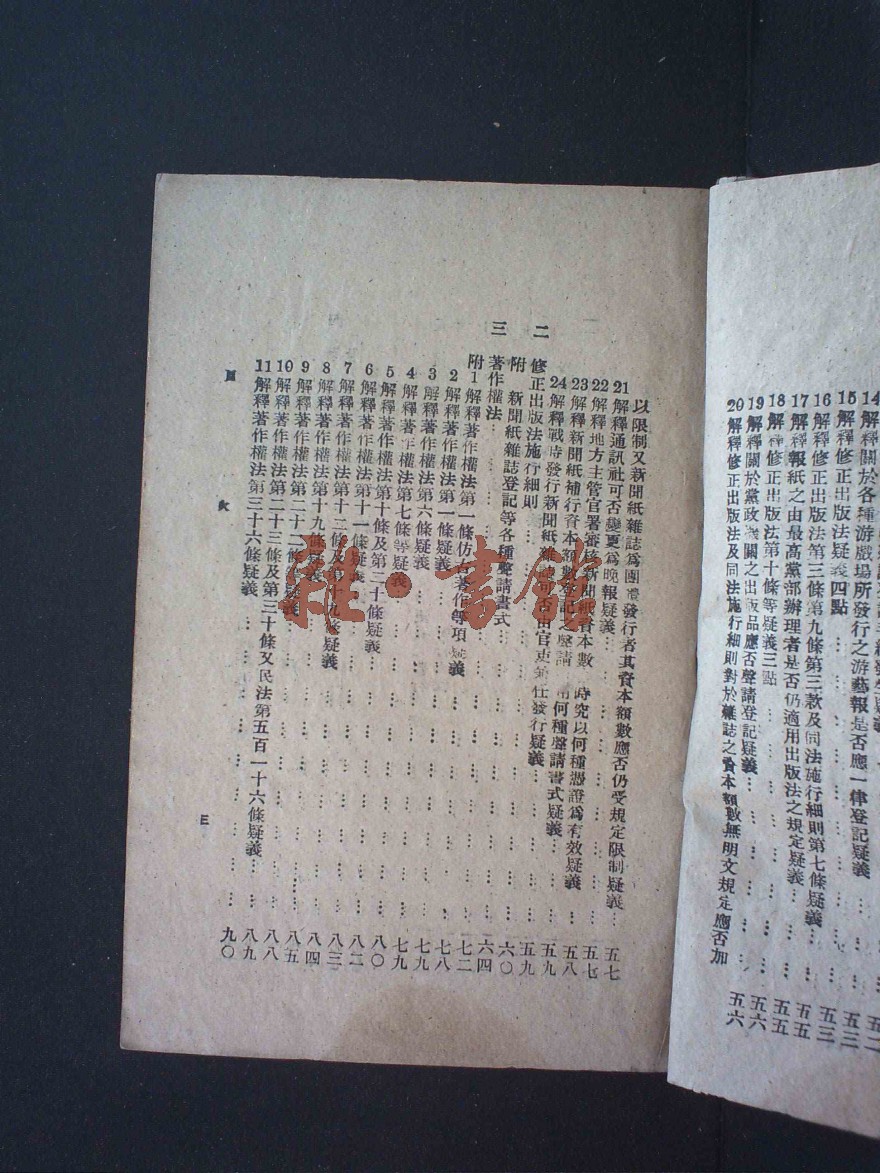 解釋關於各種游戲場所發行之游藝報是否應一律登記疑義
15 解釋修正出版法疑義四點 … 五三
16 解釋修正出版法第三條第九條第三款及同法施行細則第七條疑義 … 五三
17 解釋報紙之由最高黨部辦理者是否仍適用出版法之規定疑義 … 五五
18 解釋修正出版法第十條等疑義三點 … 五五
19 解釋關於黨政機關之出版品應否聲請登記疑義 … 五六
20 解釋修正出版法及同法施行細則對於雜誌之資本額數無明文規定應否加 五六
以限制又新聞紙雜誌為團體發行者其資本額數應否仍受規定限制疑義 … 五七
21 解釋通訊社可否變更為晚報疑義 … 五七
22 解釋地方主管官署審核新聞紙資本數 時究以何種憑證為有效疑義 … 五八
23 解釋新聞紙補行資本額數登記之聲請 用何種聲請書式疑義 … 五九
24 解釋戰時發行新聞紙雜 可否由官吏 任發行疑義 … 五九
二 修正出版法施行細則 … 六〇
附 新聞紙雜誌登記等各種聲請書式 … 六四
三 著作權法 … 七二
附 1 解釋著作權法第一條仿古著作等項疑義 … 七八
2 解釋著作權法第一條疑義 … 七九
3 解釋著作權法第六條疑義 … 七九
4 解釋著作權法第七條等疑義 … 八〇
5 解釋著作權法第十條及第二十條疑義 … 八二
6 解釋著作權法第十一條疑義 … 八三
7 解釋著作權法第十二條及第十九條疑義 … 八四
8 解釋著作權法第十九條疑義 … 八五
9 解釋著作權法第二十二條疑義 … 八八
10 解釋著作權法第二十三條及第三十條又民法第五百一十六條疑義 … 八九
11 解釋著作權法第三十六條疑義 … 九〇
目 次
三
雅·書館